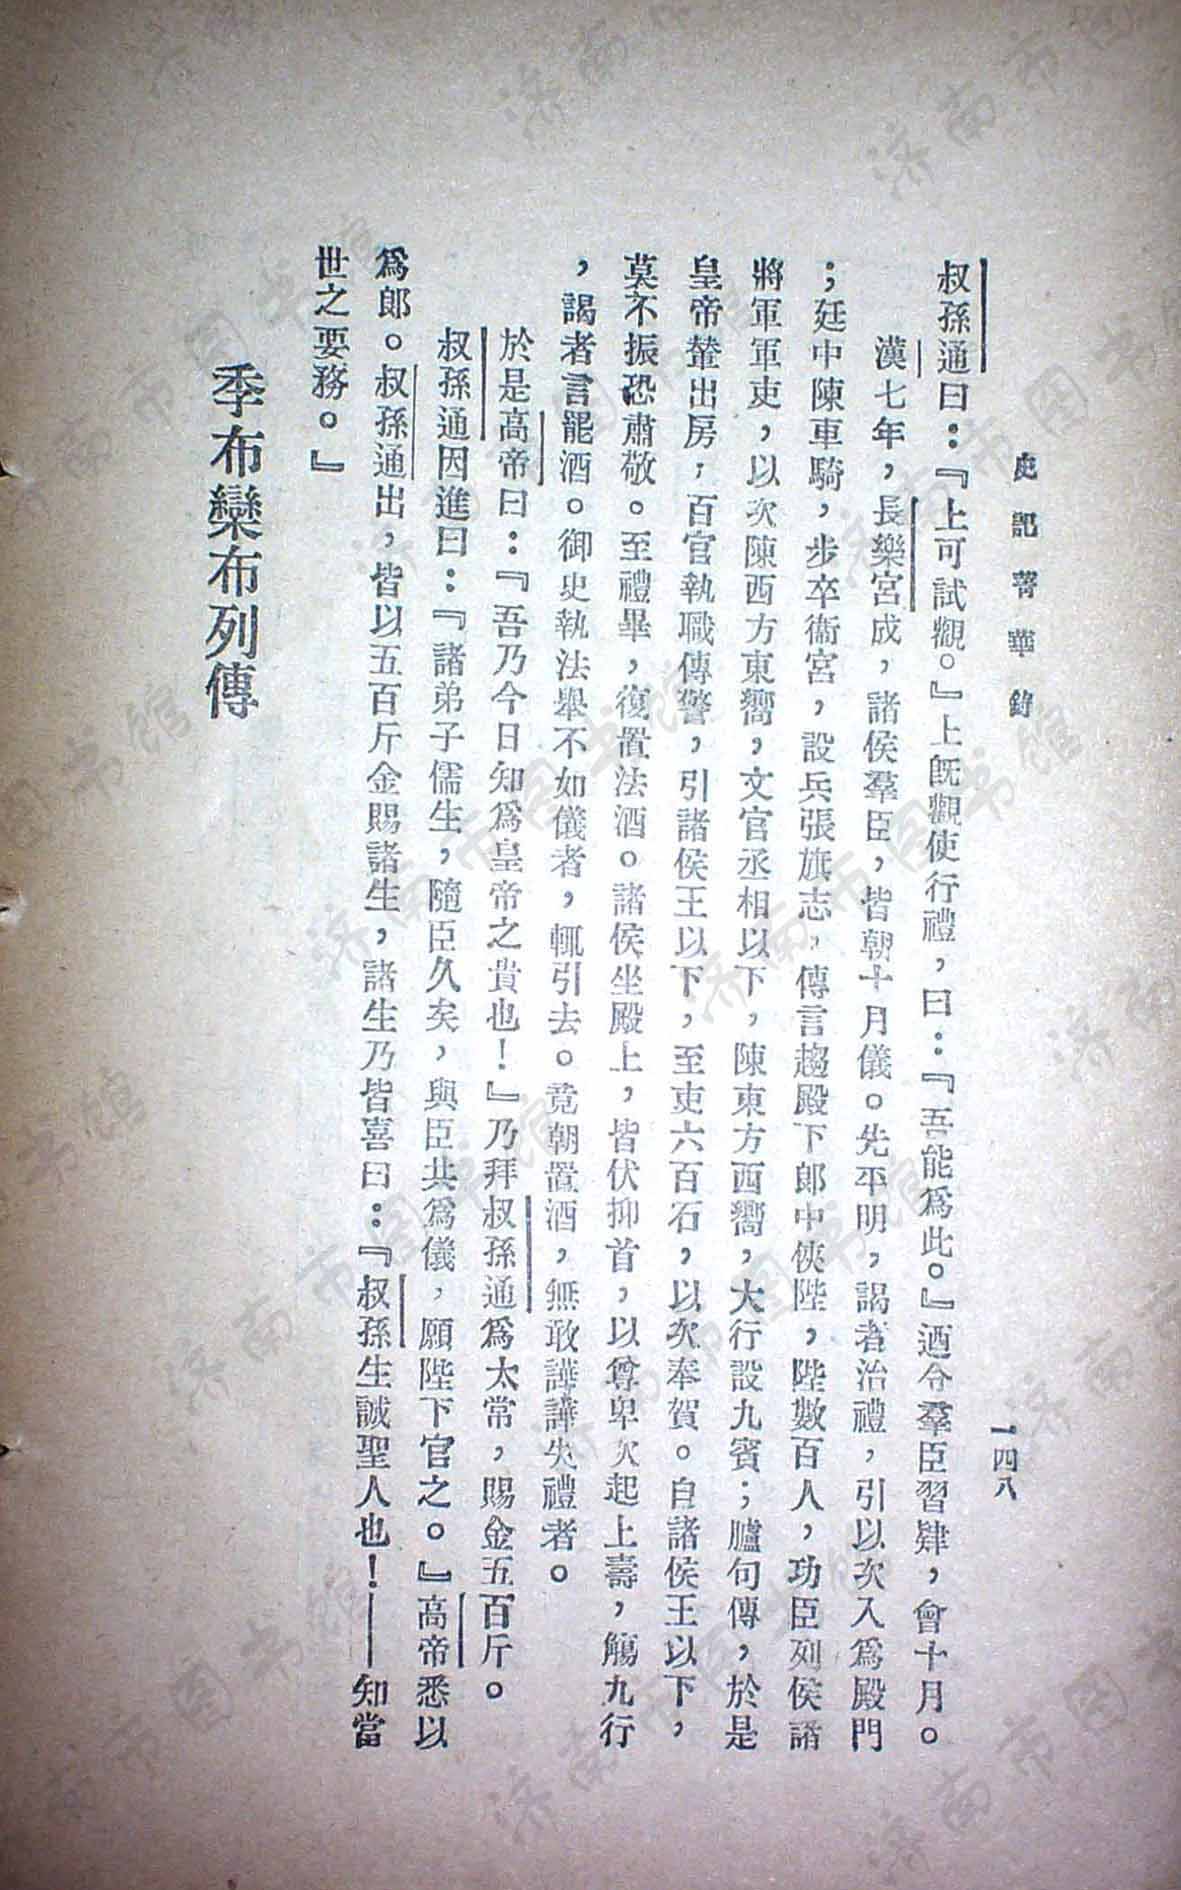 史記菁華錄
一四八
叔孫通曰：『上可試觀。』上旣觀使行禮，曰：『吾能爲此。』迺令羣臣習肄，會十月。
漢七年，長樂宮成，諸侯羣臣，皆朝十月儀。先平明，謁者治禮，引以次入爲殿門
；廷中陳車騎，步卒衞宮，設兵張旗志，傳言趨殿下郎中俠陛，陛數百人，功臣列侯諸
將軍軍吏，以次陳西方東嚮，文官丞相以下，陳東方西嚮，大行設九賓；臚句傳，於是
皇帝輦出房，百官執職傳警，引諸侯王以下，至吏六百石，以次奉賀。自諸侯王以下，
莫不振恐肅敬。至禮畢，復置法酒。諸侯坐殿上，皆伏抑首，以尊卑次起上壽，觴九行
，謁者言罷酒。御史執法舉不如儀者，輒引去。竟朝置酒，無敢譁譁失禮者。
於是高帝曰：『吾乃今日知爲皇帝之貴也！』乃拜叔孫通爲太常，賜金五百斤。
叔孫通因進曰：『諸弟子儒生，隨臣久矣，與臣共爲儀，願陛下官之。』高帝悉以
爲郎。叔孫通出，皆以五百斤金賜諸生，諸生乃皆喜曰：『叔孫生誠聖人也！——知當
世之要務。』
季布欒布列傳
济南市图书馆